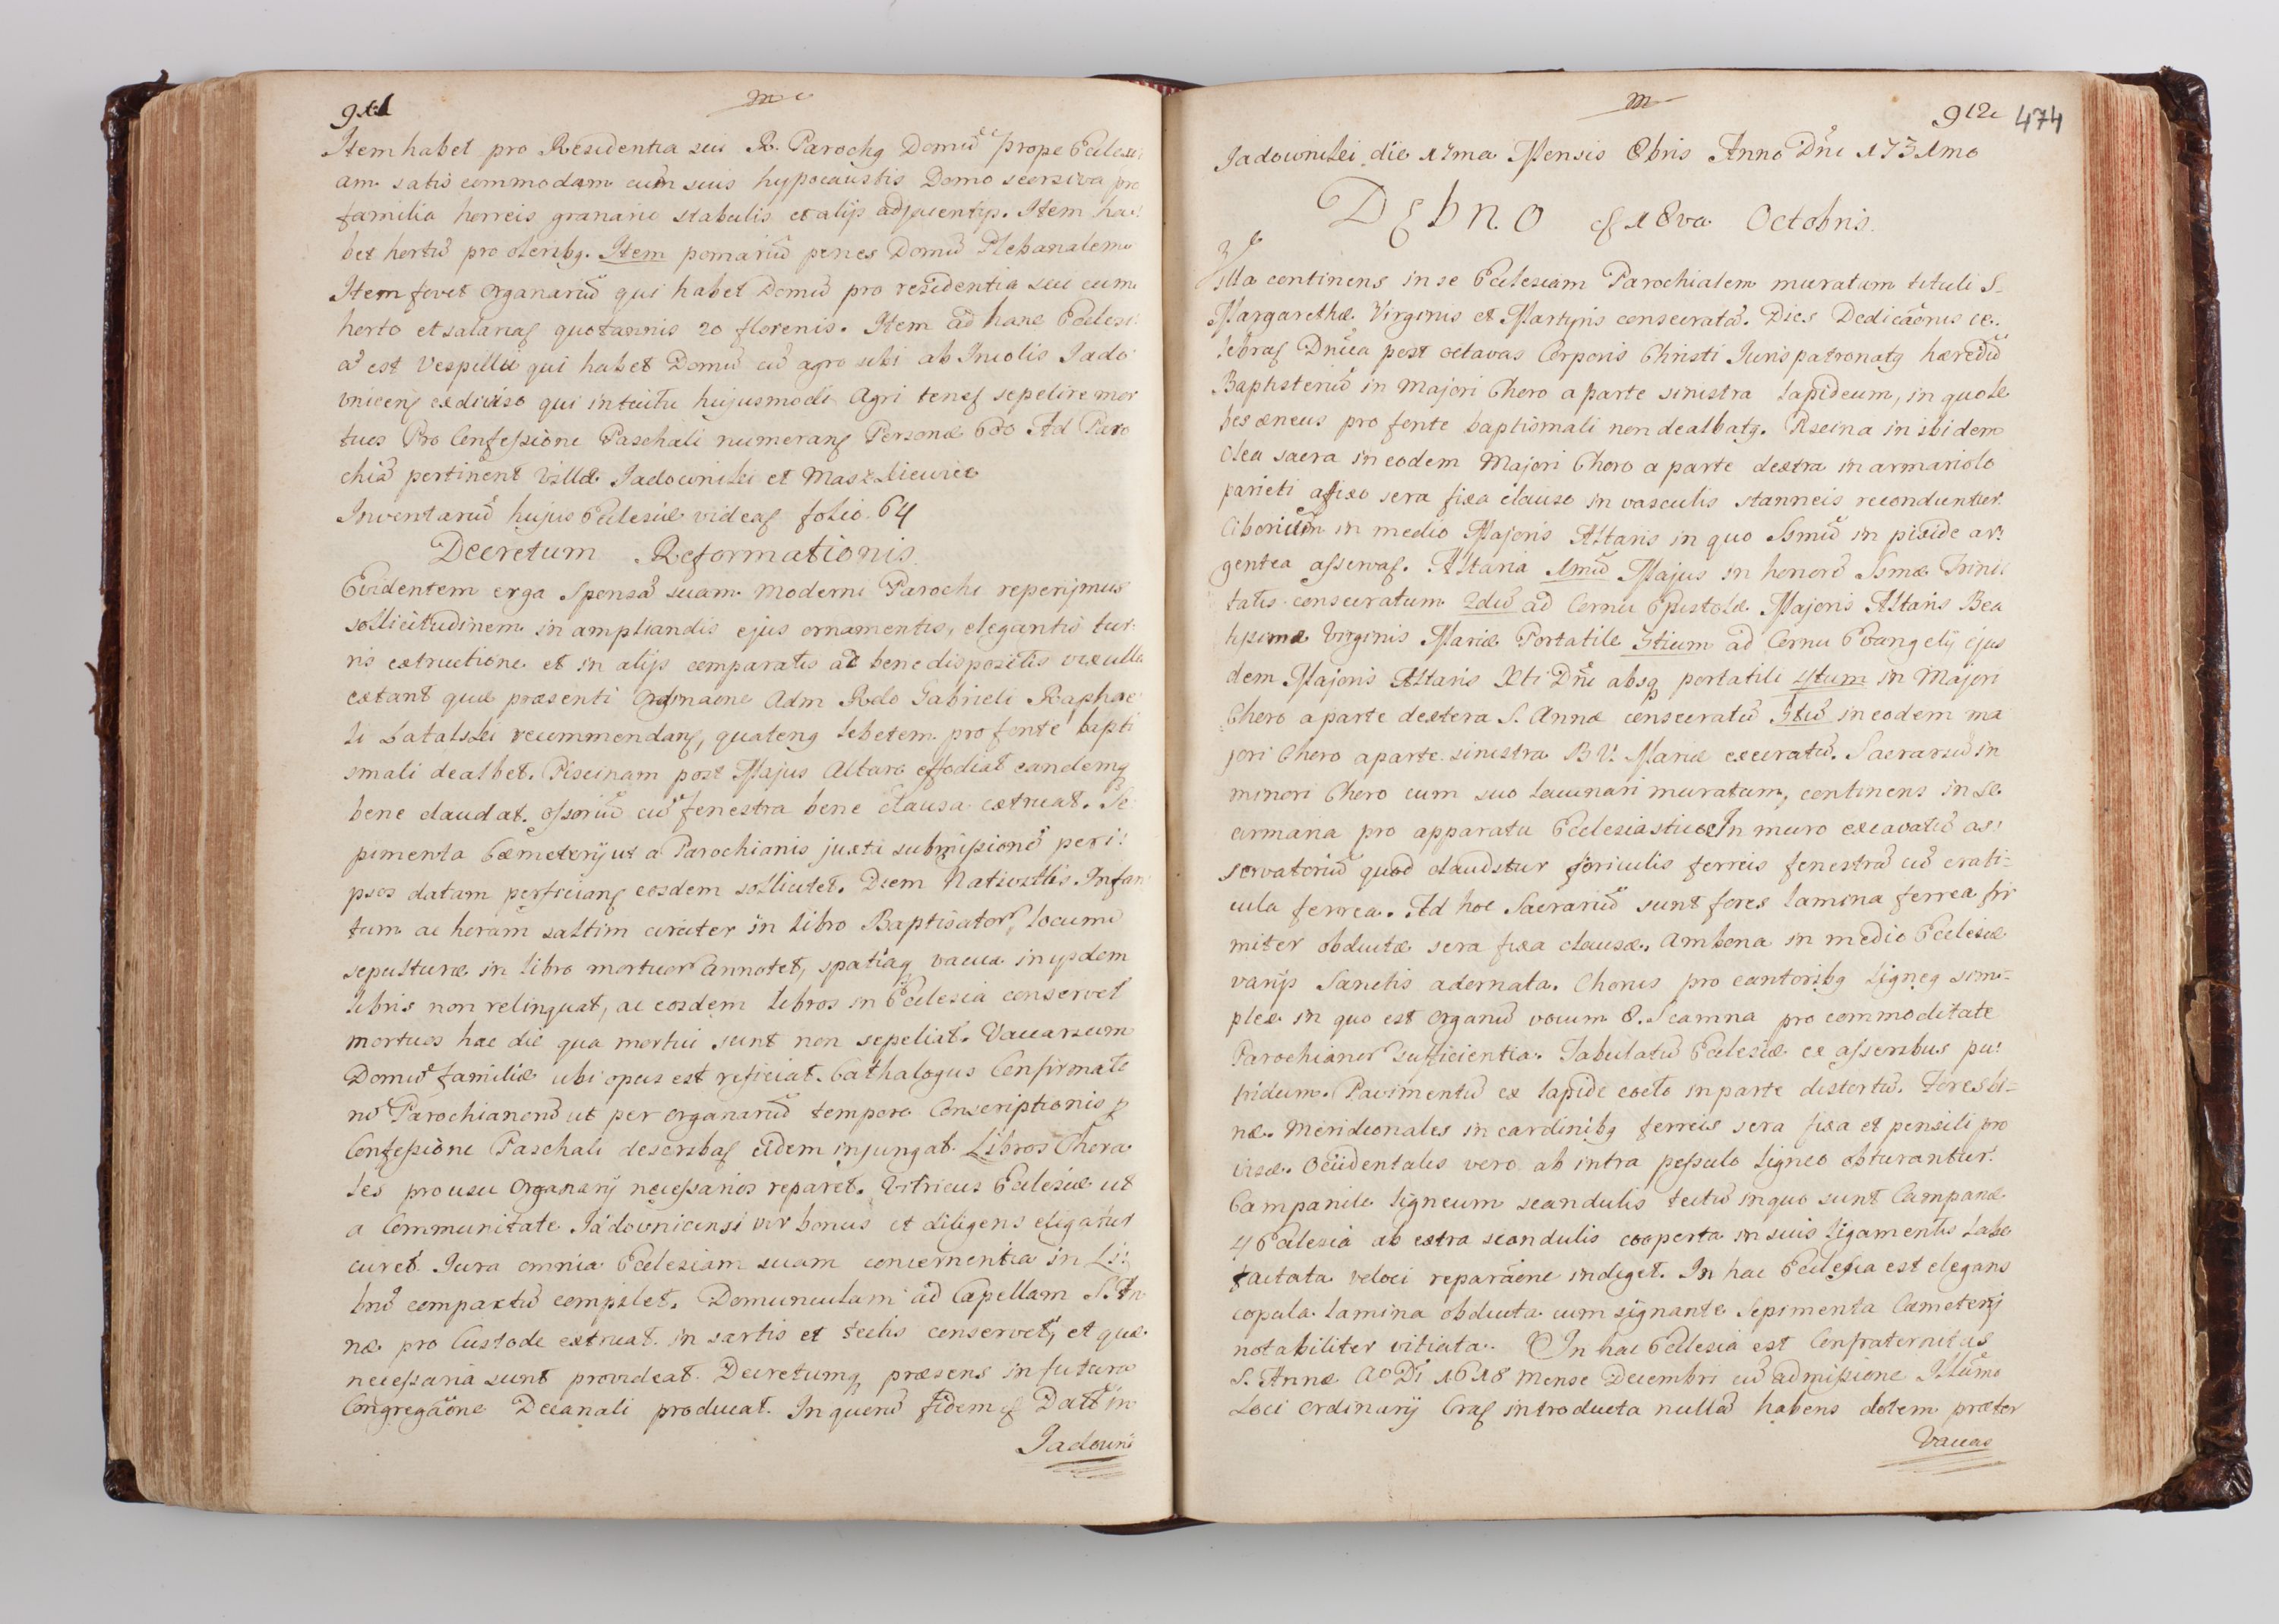 911
m
Item habet pro Residentia sui R. Parochq Domū prope Eclesi
am satis commodam cum suis hypocaustis Domo seorsiva pro
familia horreis granario stabulis et alijs adjacentijs. Item ha:
bet hortū pro oleribq. Item pomariū penes Domū Plebanalem
Item fovet Organariū qui habet Domū pro residentia sui cum
horto et salariaʃ quotannis 20 florenis. Item ad hanc Eclesi
ā est Vespillo qui habet Domū cū agro sibi ab Incolis Jado
vnicenʃ exdiviso qui intuitu hujusmodi Agri teneʃ sepelire mor
tuos Pro Confessione Paschali numeranʃ Personæ 600 Ad Paro
chiā pertinent Villæ Jadowniki et Maszkienice
Inventariū hujus Eclesiæ videaʃ folio 64
Decretum Reformationis.
Evidentem erga Sponsā suam Moderni Parochi reperijmus
sollicitudinem in ampliandis ejus ornamentis, elegantis tur
ris extructione et in alijs comparatis ac bene dispositis vexilla
extant quæ præsenti Ordinaōne Adm Rdo Gabrieli Raphae
li Latalski recommendanʃ, quatenq lebetem pro fonte bapti
smali dealbet. Piscinam post Majus Altare effodiat eandemq
bene claudat. ossoriū cū fenestra bene clausa extruat. Se
pimenta Cæmeterij ut a Parochianis juxta submissionē per i:
psos datam perficianʃ eosdem sollicitet. Diem Nativitatis Infan
tum ac horam saltim circiter in libro Baptisator, locum
sepulturæ in libro mortuor annotet, spatiaq vacua in ijsdem
libris non relinquat, ac eosdem libros in Eclesia conservet
mortuos hac die qua mortui sunt non sepeliat. Vaccarum
Domū familiæ ubi opus est reficiat. Cathalogus Confirmato
rū Parochianorū ut per Organariū tempore Conscriptionis p
Confessione Paschali describaʃ eidem injungat. Libros Chora
les pro usu Organarij necessarios reparet. Vitricus Eclesiæ ut
a Communitate Jadovnicensi vir bonus et diligens eligatur
curet. Jura omnia Eclesiam suam concernentia in Li:
brū compactū compilet. Domunculam ad Capellam S. An
næ pro Custode extruat. in sartis et tectis conservet, et quæ
necessaria sunt provideat. Decretumq præsens in futura
Congregaōne Decanali producat. In quorū fidem ʃ Datt in
Jadowni
m
912 474
Jadowniki die 17ma Mensis 8bris Anno Dni 1731mo
DĘBNO 18va Octobris.
Villa continens in se Eclesiam Parochialem muratam tituli S.
Margarethæ Virginis et Martyris consecratā. Dies Dedicaōnis ce
lebraʃ Dnīca post octavas Corporis Christi Juris patronatq hæredū
Baptisteriū in Majori Choro a parte sinistra lapideum, in quo Le
bes æneus pro fonte baptismali non dealbatq. Piscina in ibidem
Olea sacra in eodem Majori Choro a parte dextra in armariolo
parieti afixo sera fixa clauso in vasculis stanneis reconduntur.
Ciborium in medio Majoris Altaris in quo Ssmū in pixide ar:
gentea asservaʃ. Altaria 1mū Majus in honorē Ssmæ Trini
tatis consecratum 2dū ad Cornu Epistolæ Majoris Altaris Bea
tissimæ Virginis Mariæ Portatile 3tium ad Cornu Evangelij ejus
dem Majoris Altaris Xti Dni absq portatili 4tum in Majori
Choro a parte dextera S. Annæ consecratū 5tū in eodem ma
jori Choro a parte sinistra B V. Mariæ execratū. Sacrariū in
minori Choro cum suo lacunari muratum, continens in se
armaria pro apparatu Eclesiastico In muro excavatū as:
servatoriū quod clauditur foriculis ferreis fenestrā cū crati=
cula ferrea. Ad hoc Sacrariū sunt fores lamina ferrea fir
miter obductæ sera fixa clausæ. Ambona in medio Eclesiæ
varijs Sanctis adornata. Chorus pro cantoribq ligneq sim=
plex in quo est Organū vocum 8. Scamna pro commoditate
Parochianor sufficientia. Tabulatū Eclesiæ ex asseribus pu:
tridum. Pavimentū ex lapide cocto in parte distortū. Fores bi=
næ. Meridionales in cardinibq ferreis sera fixa et pensili pro
visæ. Occidentales vero ab intra pessulo ligneo obturantur.
Campanile ligneum scandulis tectū in quo sunt Campanæ
4 Eclesia ab extra scandulis cooperta in suis ligamentis labe
factata veloci reparaōne indiget. In hac Eclesia est elegans
copula lamina obducta cum signante Sepimenta Cæmeterij
notabiliter vitiata. In hac Eclesia est Confraternitas
S. Annæ Ao Di 1618 mense Decembri cū admissione Illūmo
Loci Ordinarij Craʃ introducta nullā habens dotem præter
Vaccas